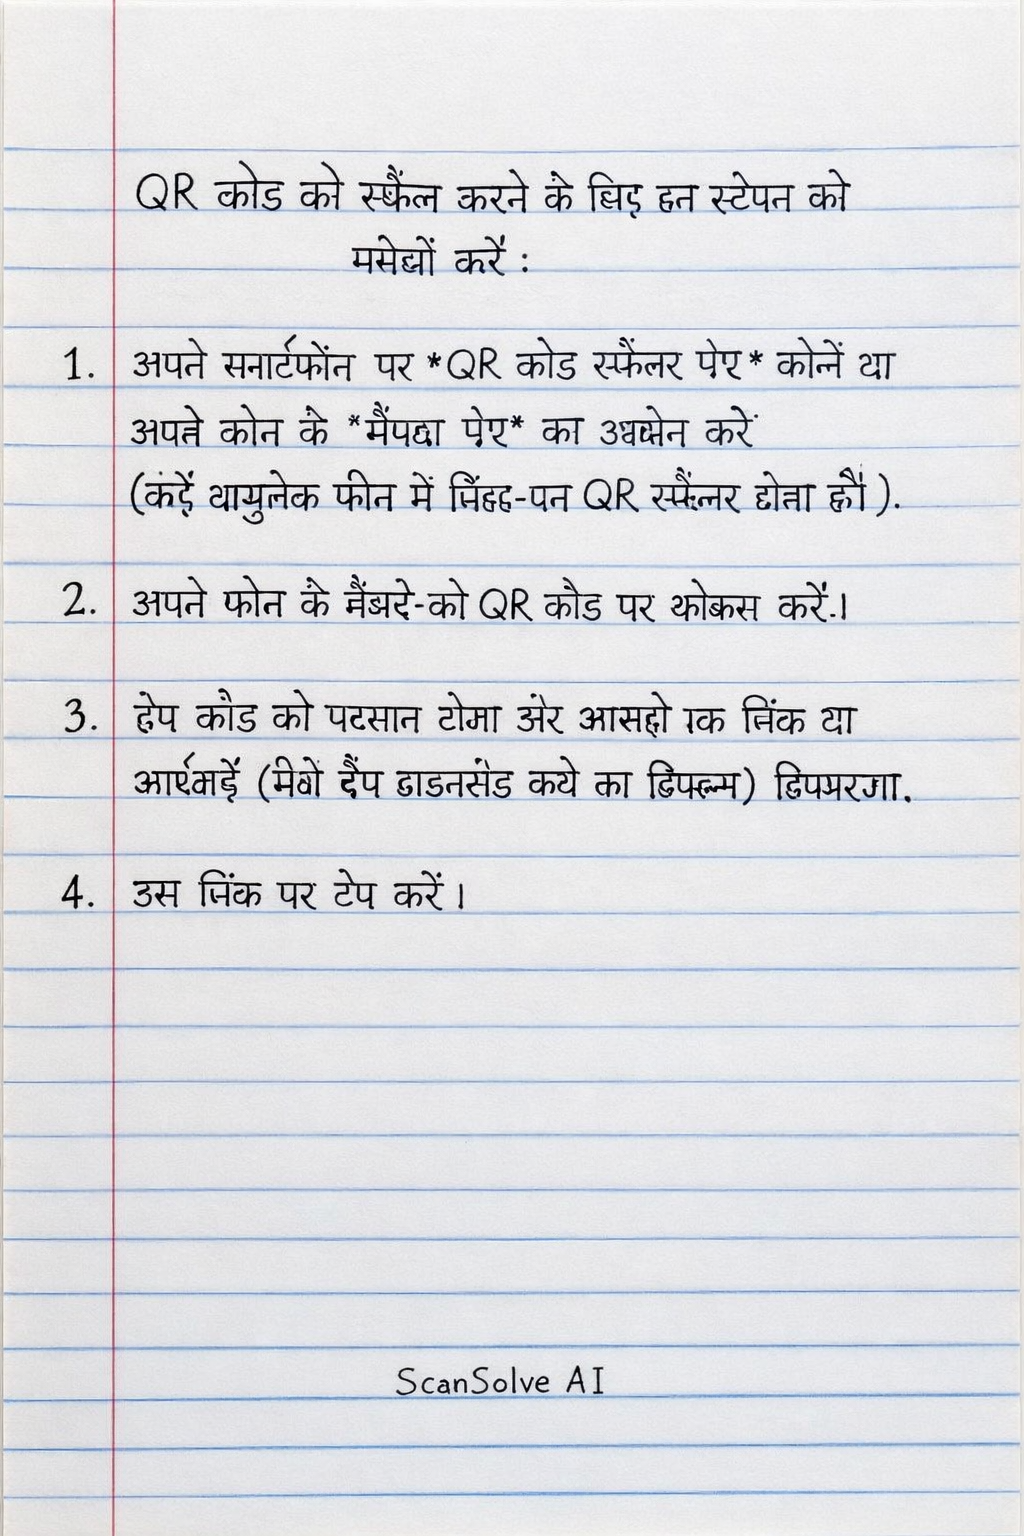 QR कोड को स्कैंल करने के लिए हन स्टेपन को
मसेद्यों करें :
1. अपने सनार्टफोंन पर *QR कोड स्फैंलर पेए* कोनें या
अपने कोन के *मैंपद्या पेए* का करें
(कंड़ें थायुनेक फीन में QR स्फैंलर होता हौं).
2. अपने फोन के मैंबदे-को QR कौड पर फोकस करें.।
3. हेप कौड को पटसान टोमा अंर आसहो एक लिंक या
(मेवो दैंप डाडनसंड कये का)
4. उस लिंक पर टेप करें।
ScanSolve AI